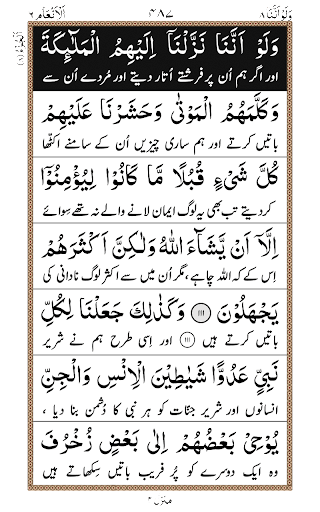 وَلَوْ اَنَّنَا ٨ ٤٨٧ اَلْاَنْعَام ٦
وَلَوْ اَنَّنَا نَزَّلْنَاۤ اِلَيْهِمُ الْمَلٰٓئِكَةَ
اور اگر ہم اُن پر فرشتے اُتار دیتے اور مُردے اُن سے
وَكَلَّمَهُمُ الْمَوْتٰى وَحَشَرْنَا عَلَيْهِمْ
باتیں کرتے اور ہم ساری چیزیں اُن کے سامنے اکٹھا
كُلَّ شَىْءٍ قُبُلًا مَّا كَانُوْا لِيُؤْمِنُوْۤا
کر دیتے تب بھی یہ لوگ ایمان لانے والے نہ تھے سِوائے
اِلَّاۤ اَنْ يَّشَآءَ اللّٰهُ وَلٰكِنَّ اَكْثَرَهُمْ
اِس کے کہ اللہ چاہے، مگر اُن میں سے اکثر لوگ نادانی کی
يَجْهَلُوْنَ ۝۱۱۱ وَكَذٰلِكَ جَعَلْنَا لِكُلِّ
باتیں کرتے ہیں ۝۱۱۱ اور اِسی طرح ہم نے شریر
نَبِىٍّ عَدُوًّا شَيٰطِيْنَ الْاِنْسِ وَالْجِنِّ
انسانوں اور شریر جنّات کو ہر نبی کا دُشمن بنا دیا ،
يُوْحِىْ بَعْضُهُمْ اِلٰى بَعْضٍ زُخْرُفَ
وہ ایک دوسرے کو پُر فریب باتیں سِکھاتے ہیں
منزل ۲